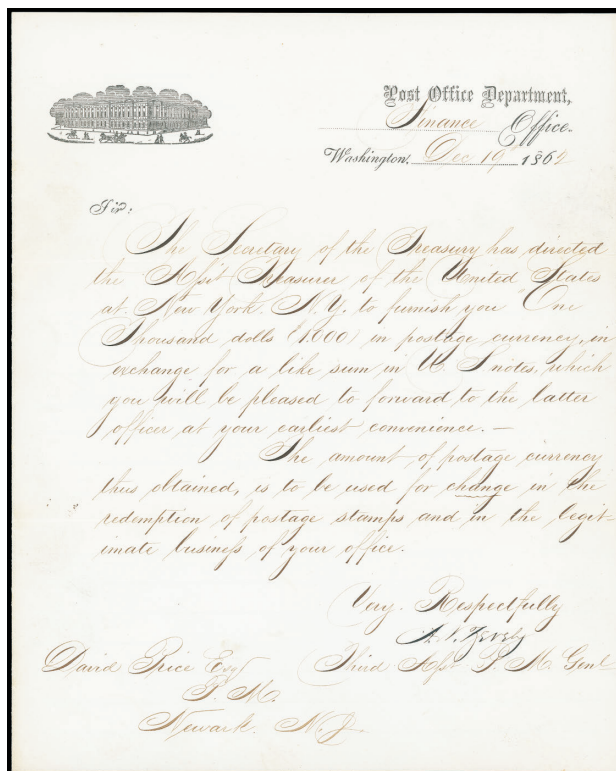 Post Office Department,
Finance Office.
Washington, Dec 19th 1862
Sir:
The Secretary of the Treasury has directed
the Asst Treasurer of the United States
at New York. N.Y. to furnish you "One
Thousand dolls (1.000) in postage currency, in
exchange for a like sum in U. S notes, which
you will be pleased to forward to the latter
officer at your earliest convenience. —
The amount of postage currency
thus obtained, is to be used for change in the
redemption of postage stamps and in the legit-
imate business of your office.
Very. Respectfully
A. N. Zevely
Third Asst P. M. Genl
David Price Esq
P. M.
Newark. N. J.